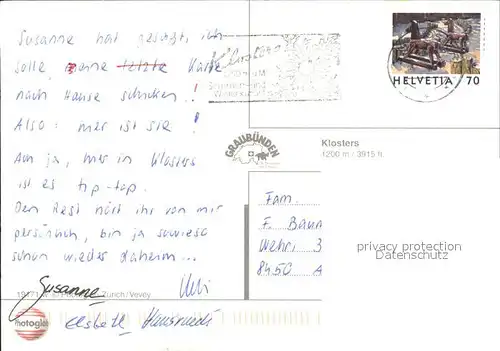 Susanne hat gesagt, ich
solle gerne letzte Karte
nach Hause schicken!
Also: hier ist sie!
Au ja, hier in Klosters
ist es tip-top.
Den Rest hört ihr von mir
persönlich, bin ja sowieso
schon wieder daheim...
Susanne
Elsbeth Hansruedi
Klosters
HELVETIA 70
GRAUBÜNDEN
Klosters
1200 m / 3915 ft.
Fam.
F. Baum
Wehri 3
8450 A
privacy protection
Datenschutz
Zürich/Vevey
Photoglob